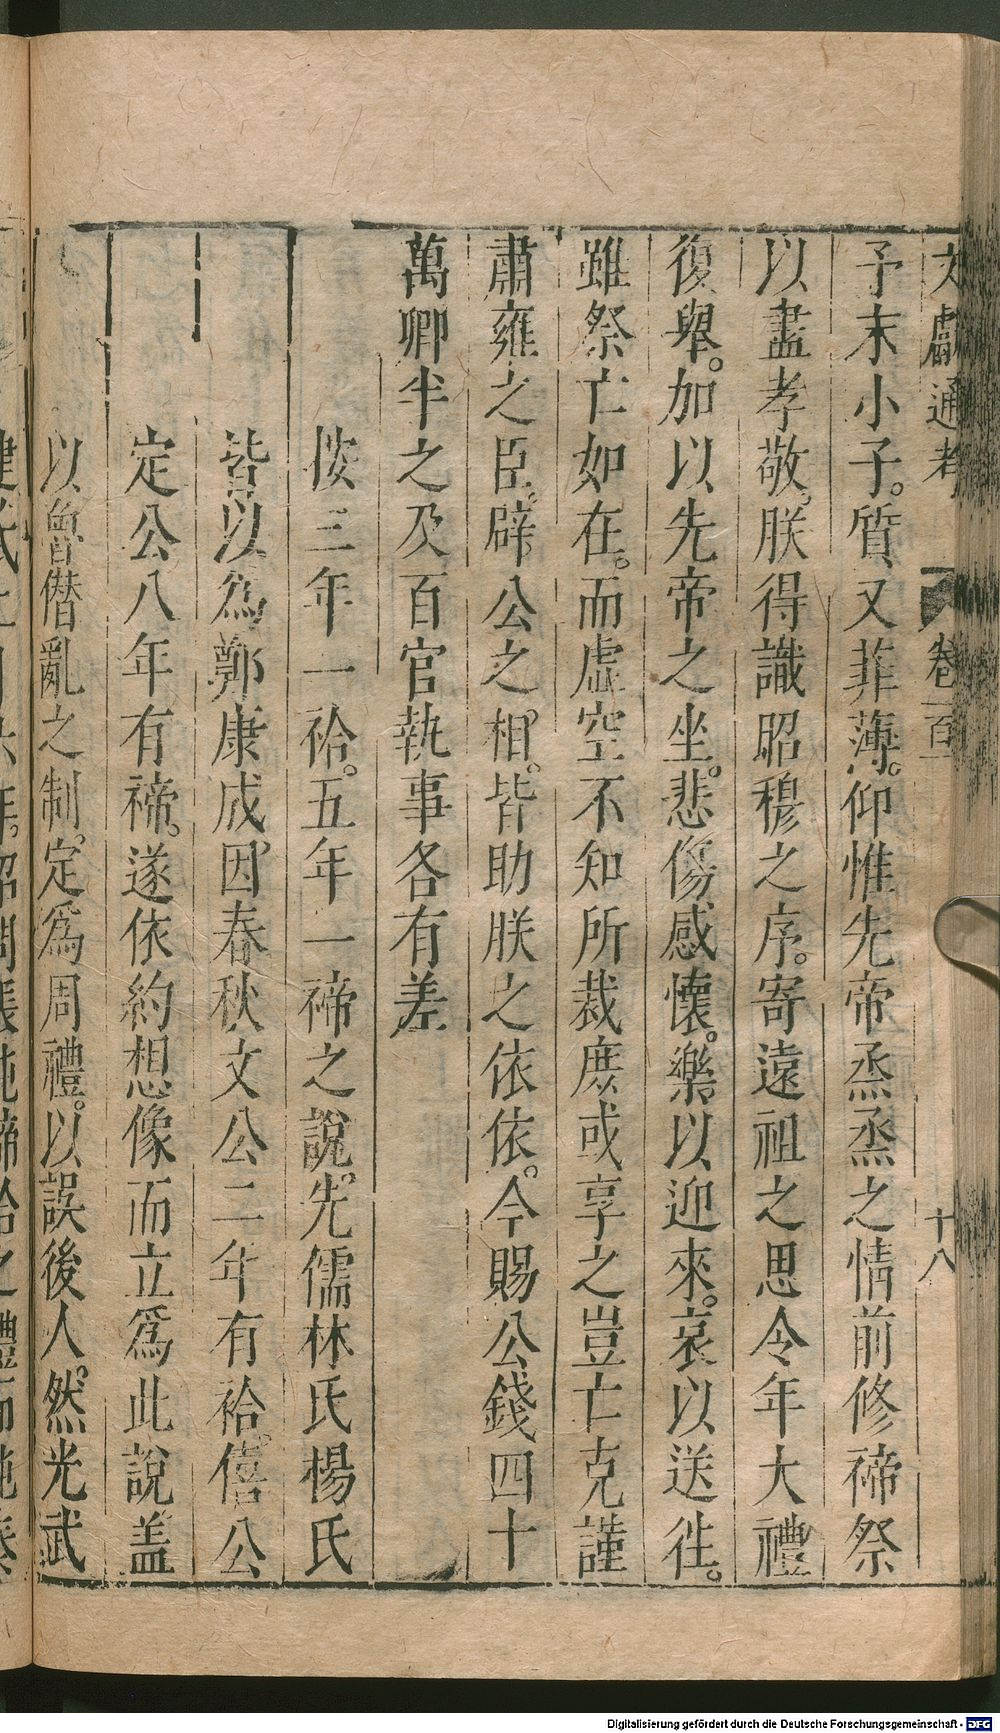 文獻通考 卷一百一 十八
予末小子。質又菲薄。仰惟先帝烝烝之情前修禘祭
以盡孝敬。朕得識昭穆之序。寄遠祖之思令年大禮
復舉。加以先帝之坐。悲傷感懷。樂以迎來。哀以送徃。
雖祭亡如在。而虛空不知所裁庶或享之豈亡克謹
肅雍之臣。辟公之相。皆助朕之依依。今賜公錢四十
萬卿半之及百官執事各有差
按三年一祫。五年一禘之說。先儒林氏楊氏
皆以爲鄭康成。因春秋文公二年有祫。僖公
定公八年有禘。遂依約想像而立爲此說蓋
以魯僭亂之制。定爲周禮。以誤後人。然光武
Digitalisierung gefördert durch die Deutsche Forschungsgemeinschaft - DFG